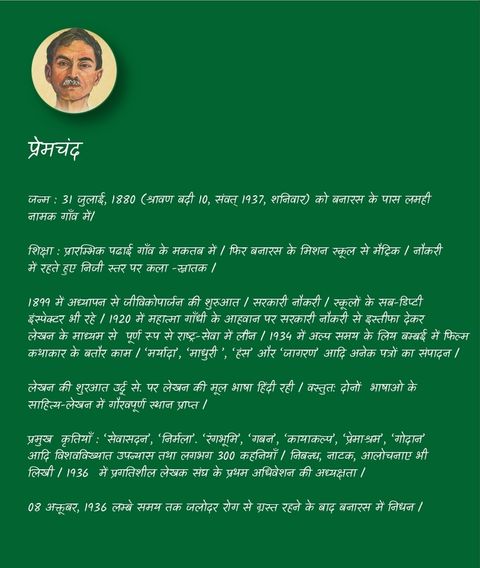 प्रेमचंद
जन्म : 31 जुलाई, 1880 (श्रावण बदी 10, संवत् 1937, शनिवार) को बनारस के पास लमही
नामक गाँव में/
शिक्षा : प्रारम्भिक पढाई गाँव के मकतब में / फिर बनारस के मिशन स्कूल से मैट्रिक / नौकरी
में रहते हुए निजी स्तर पर कला -स्नातक /
1899 में अध्यापन से जीविकोपार्जन की शुरुआत / सरकारी नौकरी / स्कूलों के सब-डिप्टी
इंस्पेक्टर भी रहे / 1920 में महात्मा गाँधी के आहवान पर सरकारी नौकरी से इस्तीफा देकर
लेखन के माध्यम से पूर्ण रूप से राष्ट्र-सेवा में लीन / 1934 में अल्प समय के लिय बम्बई में फिल्म
कथाकार के बतौर काम / 'मर्यादा', 'माधुरी ', 'हंस' और 'जागरण' आदि अनेक पत्रों का संपादन /
लेखन की शुरआत उर्दू से. पर लेखन की मूल भाषा हिंदी रही / वस्तुतः दोनों भाषाओ के
साहित्य-लेखन में गौरवपूर्ण स्थान प्राप्त /
प्रमुख कृतियाँ : 'सेवासदन', 'निर्मला'. 'रंगभूमि', 'गबन', 'कायाकल्प', 'प्रेमाश्रम', 'गोदान'
आदि विश्वविख्यात उपन्यास तथा लगभग 300 कहनियाँ / निबन्ध, नाटक, आलोचनाए भी
लिखी / 1936 में प्रगतिशील लेखक संघ के प्रथम अधिवेशन की अध्यक्षता /
08 अक्तूबर, 1936 लम्बे समय तक जलोदर रोग से ग्रस्त रहने के बाद बनारस में निधन /